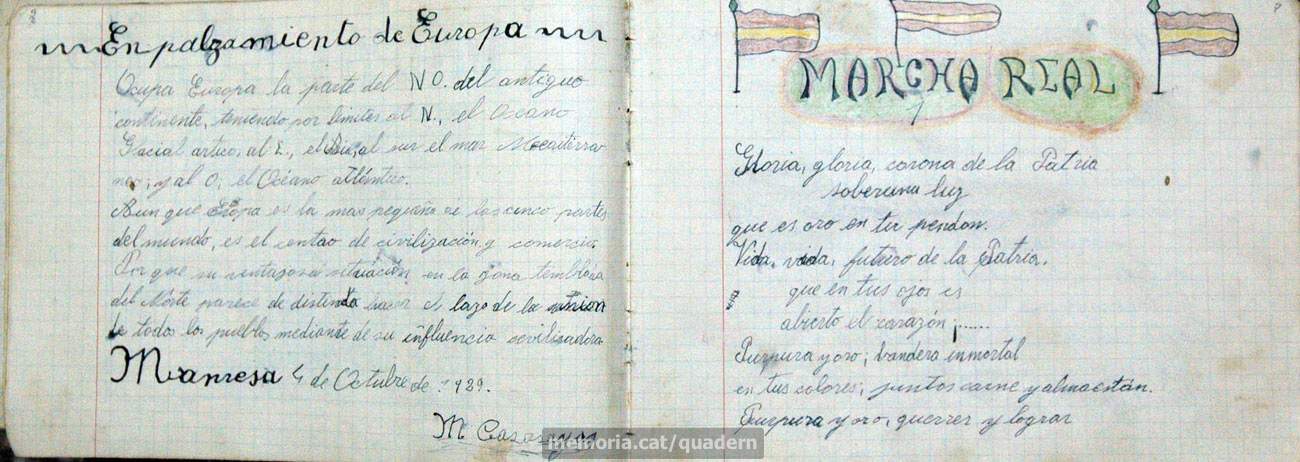 En palzamiento de Europa
Ocupa Europa la parte del NO. del antiguo
continente, teniendo por limites al N., el Oceano
Glacial artico, al E, el Asia, al sur el mar Mediterra
neo, y al O, el Océano atlántico.
Aun que Europa es la mas pequeña de las cinco partes
del mundo, es el centro de civilización y comercio.
Por que su ventajosa situación en la zona templada
del Norte parece de distinda hacer el lazo de la union
de todos los pueblos mediante de su influencia sevilisadora
Manresa 4 de Octubre de 1929.
M Casasayas
MARCHA REAL
Gloria, gloria, corona de la Patria
soberana luz
que es oro en tu pendon.
Vida, vida, futuro de la Patria.
que en tus ojos es
abierto el corazón ;......
Purpura y oro; bandera inmortal
en tus colores; juntos carne y alma están.
Purpura y oro, querrer y lograr
memoria.cat/quadern